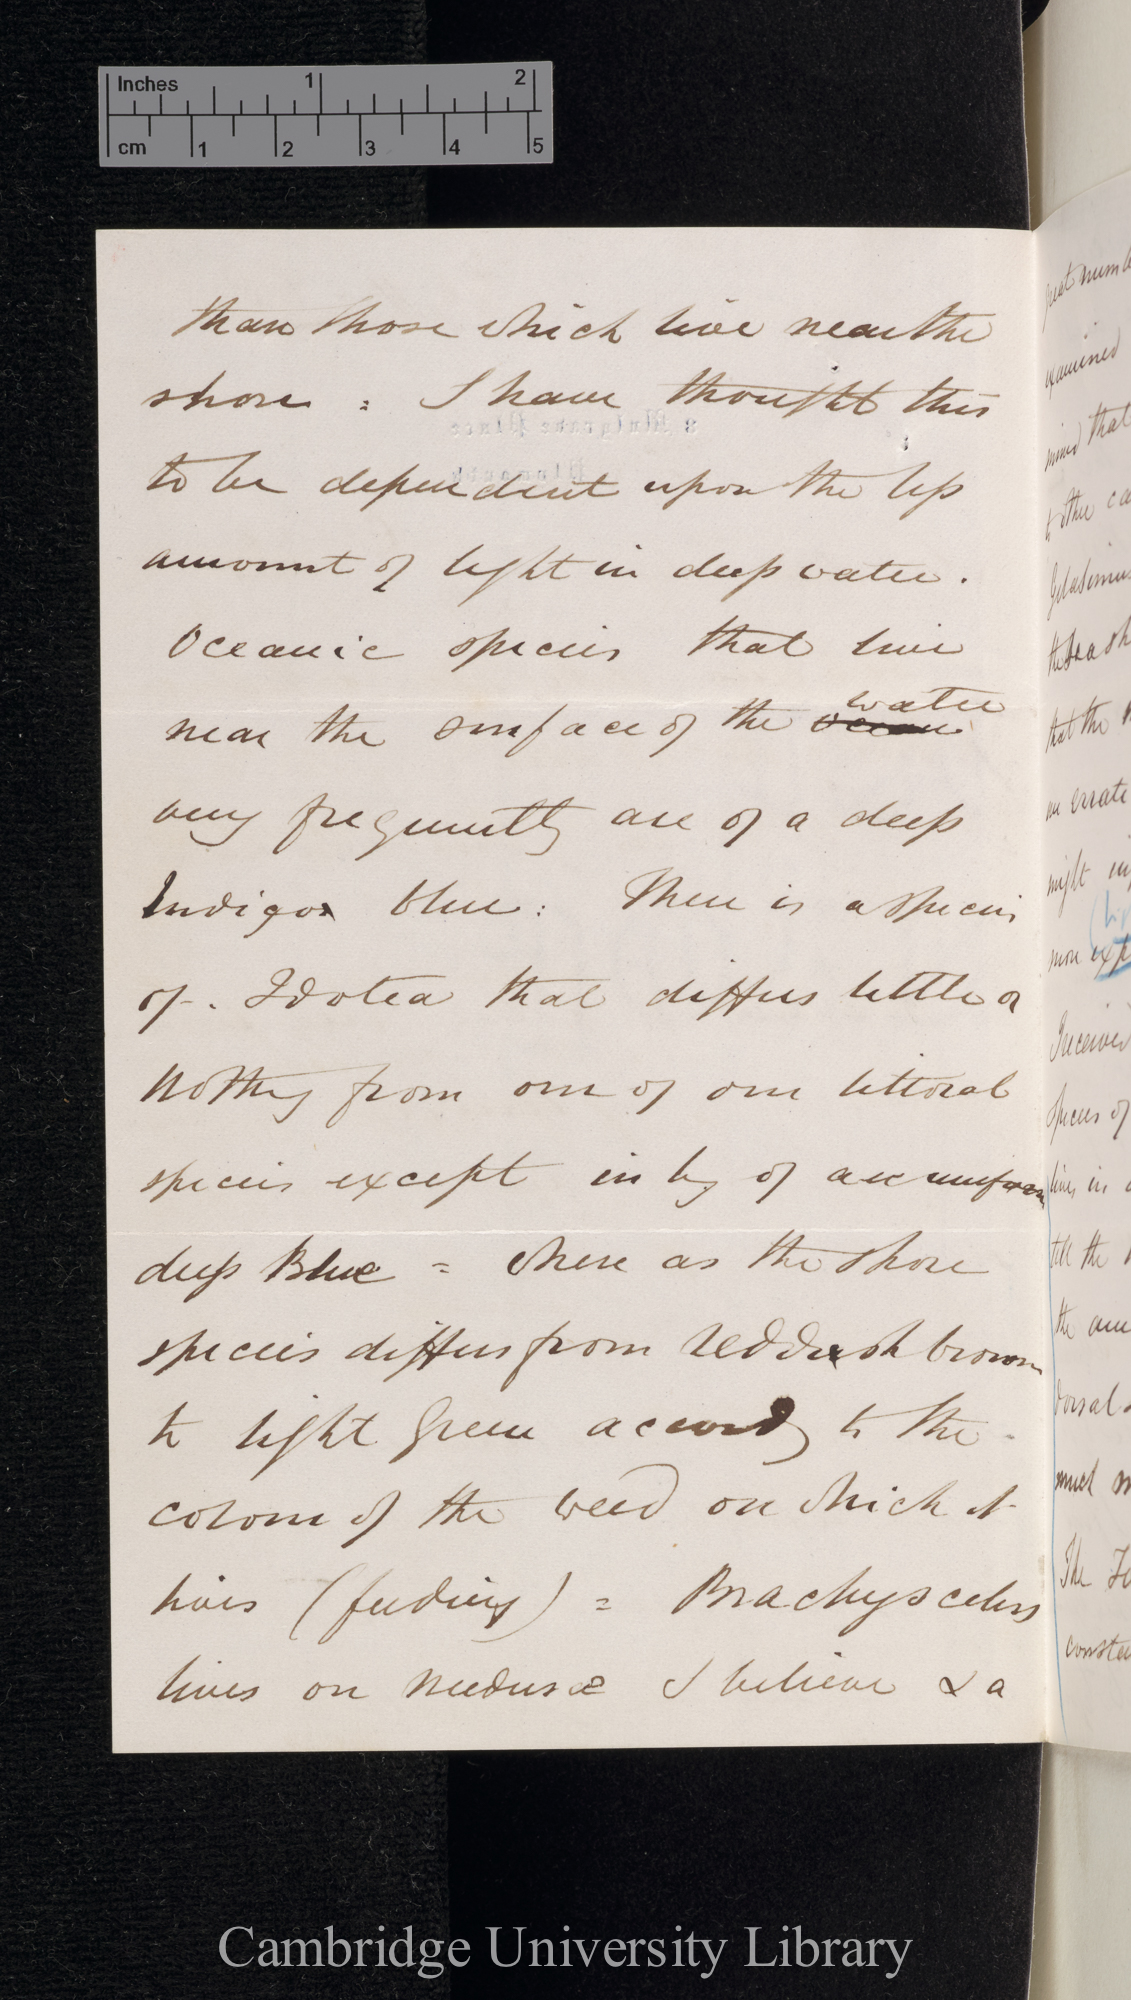 Inches 1 2
cm 1 2 3 4 5
than those which live near the
shore : I have thought this
to be dependent upon the less
amount of light in deep water.
Oceanic species that live
near the surface of the ocean water
very frequently are of a deep
Indigo blue : There is a species
of . Idotea that differs little or
nothing from one of our littoral
species except in by of an uniform
deep Blue = where as the shore
species differs from reddish brown
to light Green accordg to the
colour of the weed on which it
lives (feeding) = Brachyscelus
lives on Medusæ I believe & a
examined
that
to the
that the
an errati
might
more
I received
species of
lives in
till the
the
dorsal
much
The
Cambridge University Library